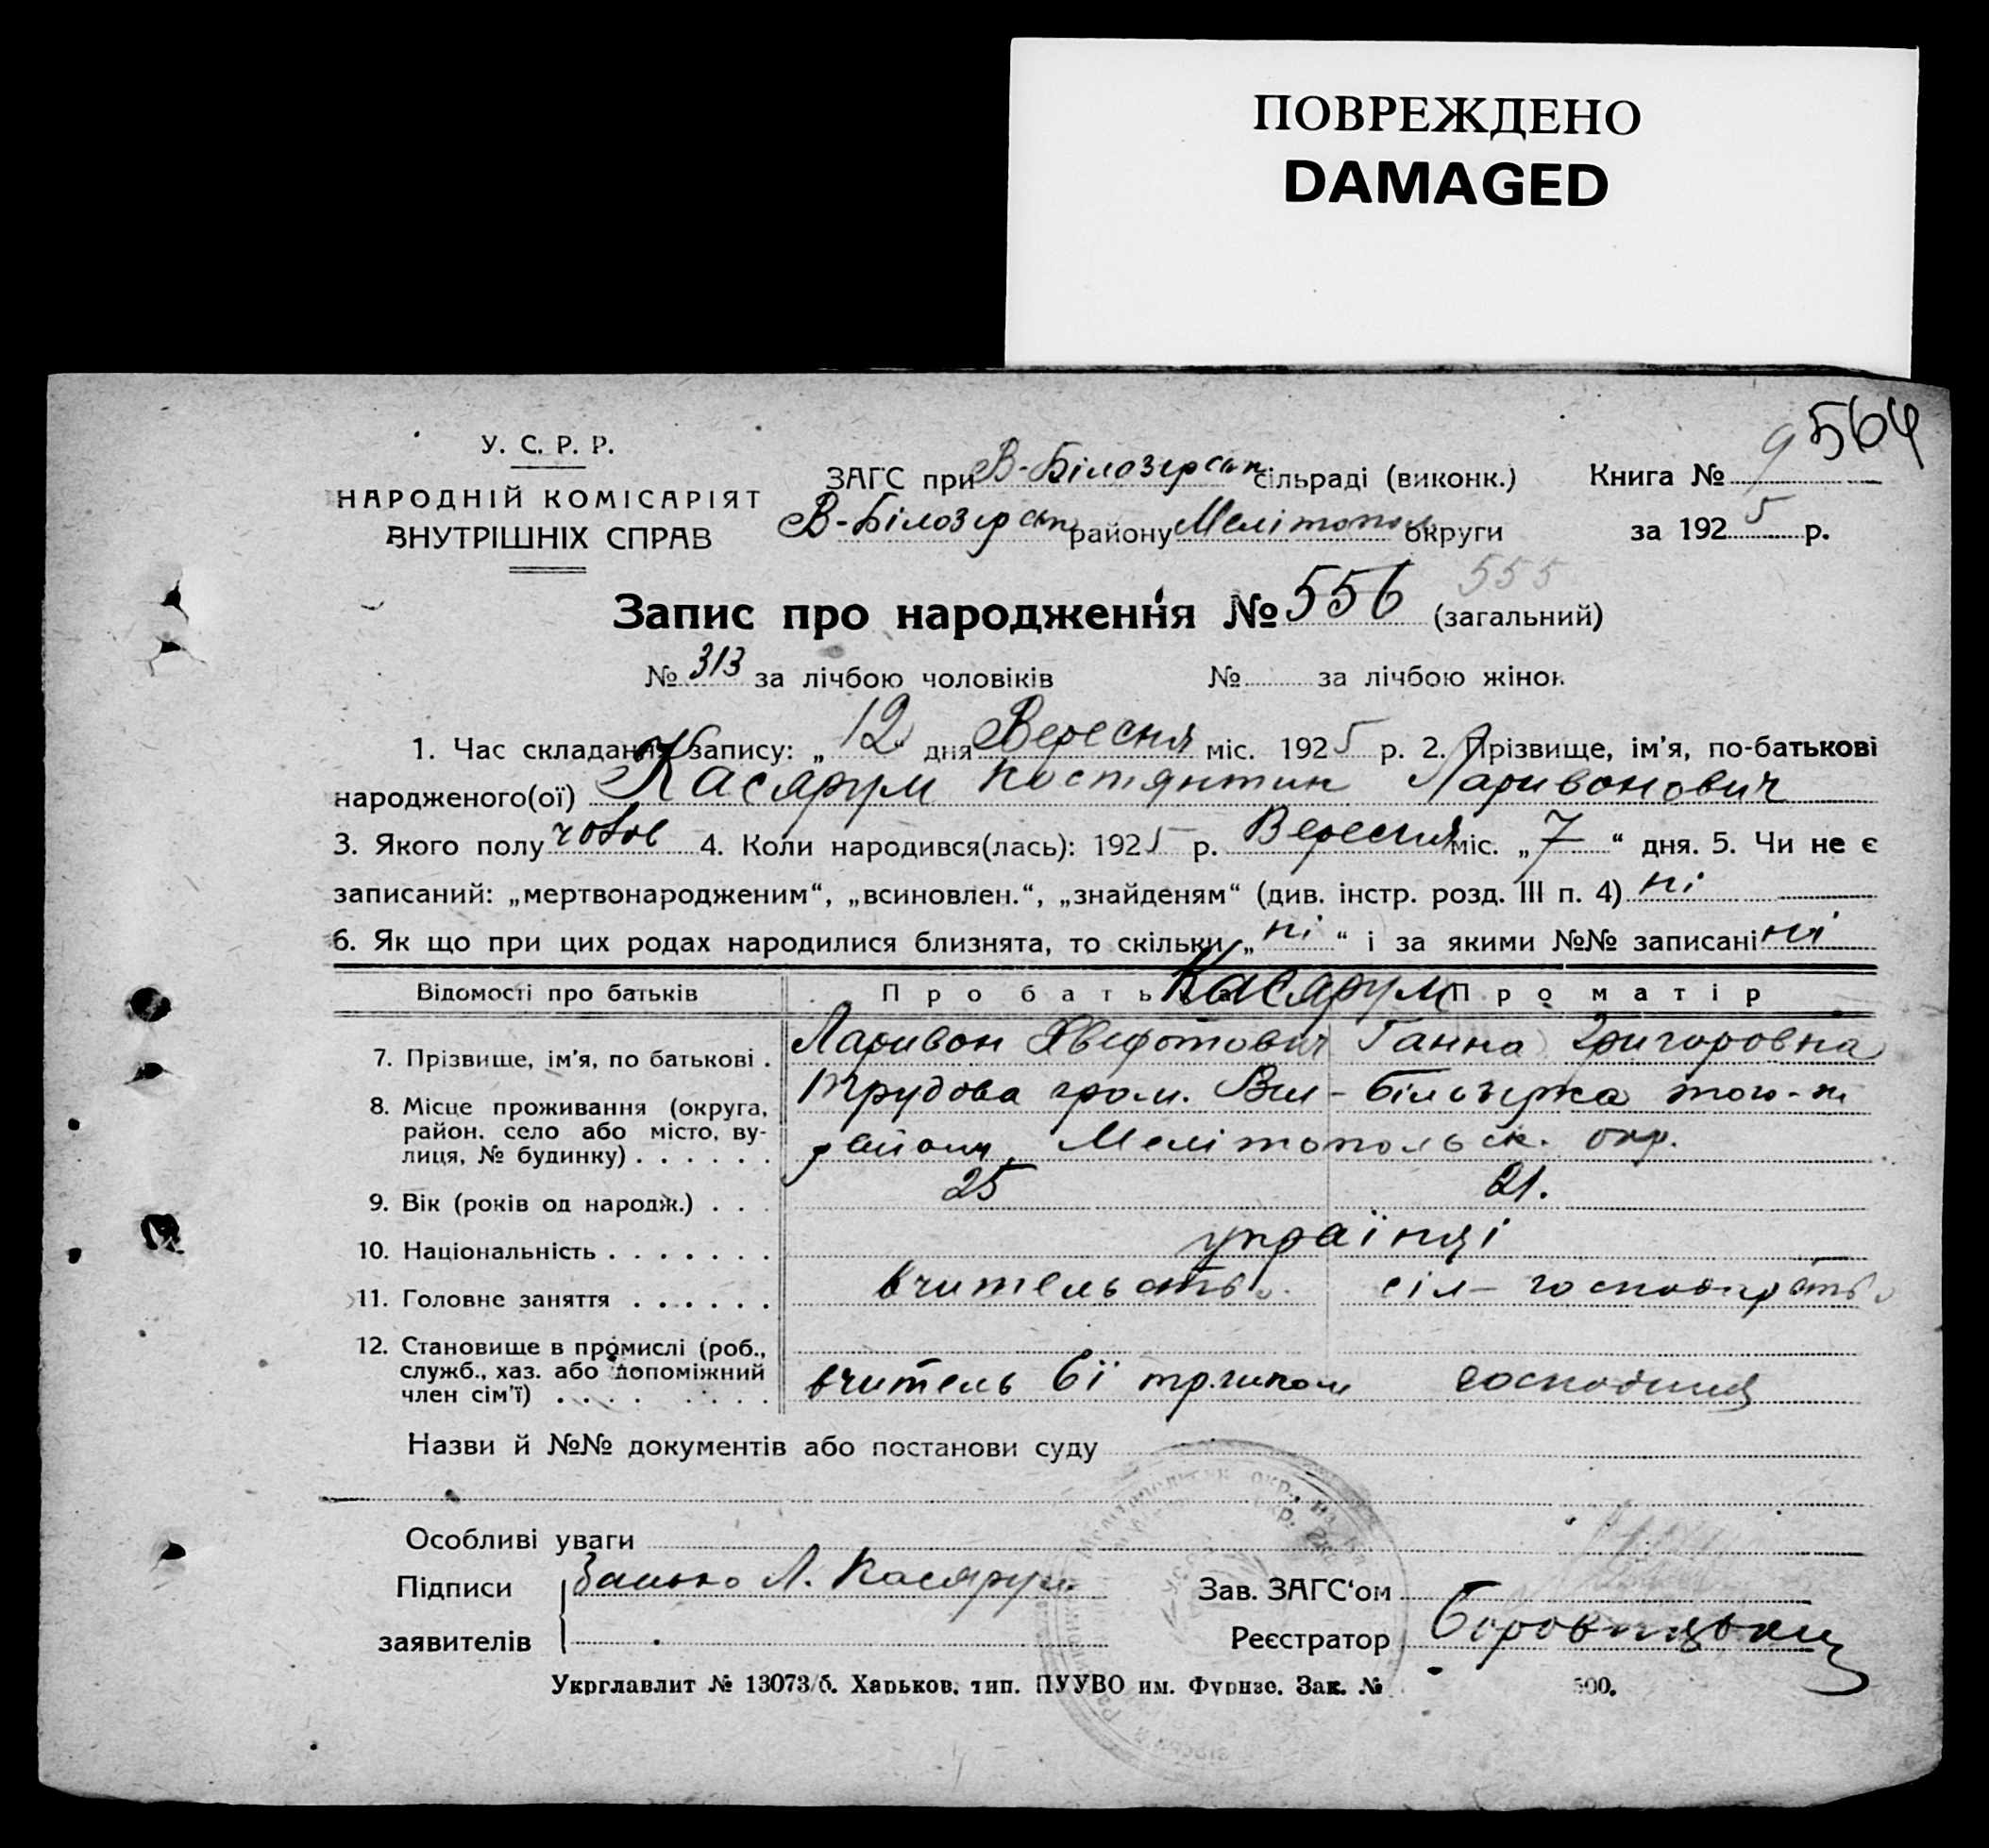 ПОВРЕЖДЕНО
DAMAGED
564
У. С. Р. Р.
НАРОДНІЙ КОМІСАРІЯТ
ВНУТРІШНІХ СПРАВ
ЗАГС при В-Білозерськ сільраді (виконк.) Книга № 9
В-Білозерськ району Мелітопол округи за 1925 р.
555
Запис про народження № 556 (загальний)
№ 313 за лічбою чоловіків № за лічбою жінок
1. Час складання запису: „12“ дня Вересня міс. 1925 р. 2. Прізвище, ім'я, по-батькові
народженого(ої) Касярум Костянтин Ларивонович
3. Якого полу чолов 4. Коли народився(лась): 1925 р. Вересня міс. „7“ дня. 5. Чи не є
записаний: „мертвонародженим“, „всиновлен.“, „знайденям“ (див. інстр. розд. III п. 4) ні
6. Як що при цих родах народилися близнята, то скільки „ні“ і за якими №№ записані ні
Відомості про батьків Про батька Касярум Про матір
7. Прізвище, ім'я, по батькові . Ларивон Ганна Григоровна
8. Місце проживання (округа, Трудова гром. Вел-Білозерка того-ж
район. село або місто, ву-
лиця, № будинку) . . . . . . району, Мелітопольськ. окр.
9. Вік (років од народж.) . . . 25 21.
10. Національність . . . . . . . українці
11. Головне заняття . . . . . . вчительств. сіл-господарств
12. Становище в промислі (роб.,
служб., хаз. або допоміжний
член сім'ї) . . . . . . . . вчитель 6ї тр. школи господиня
Назви й №№ документів або постанови суду
Особливі уваги
Підписи Батько Л. Касярум Зав. ЗАГС‘ом
заявителів Реєстратор
Укрглавлит № 13073/б. Харьков, тип. ПУУВО им. Фрунзе. Зак. № 500.